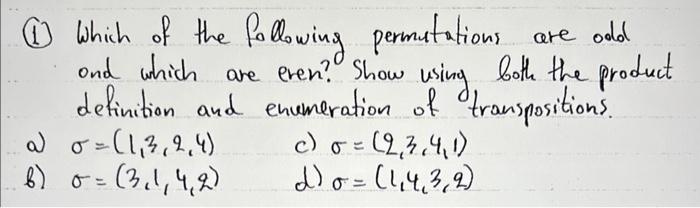 ① Which of the following permutations are odd
and which are even? Show using both the product
definition and enumeration of transpositions.
a) σ = (1,3,2,4) c) σ = (2,3,4,1)
b) σ = (3,1,4,2) d) σ = (1,4,3,2)